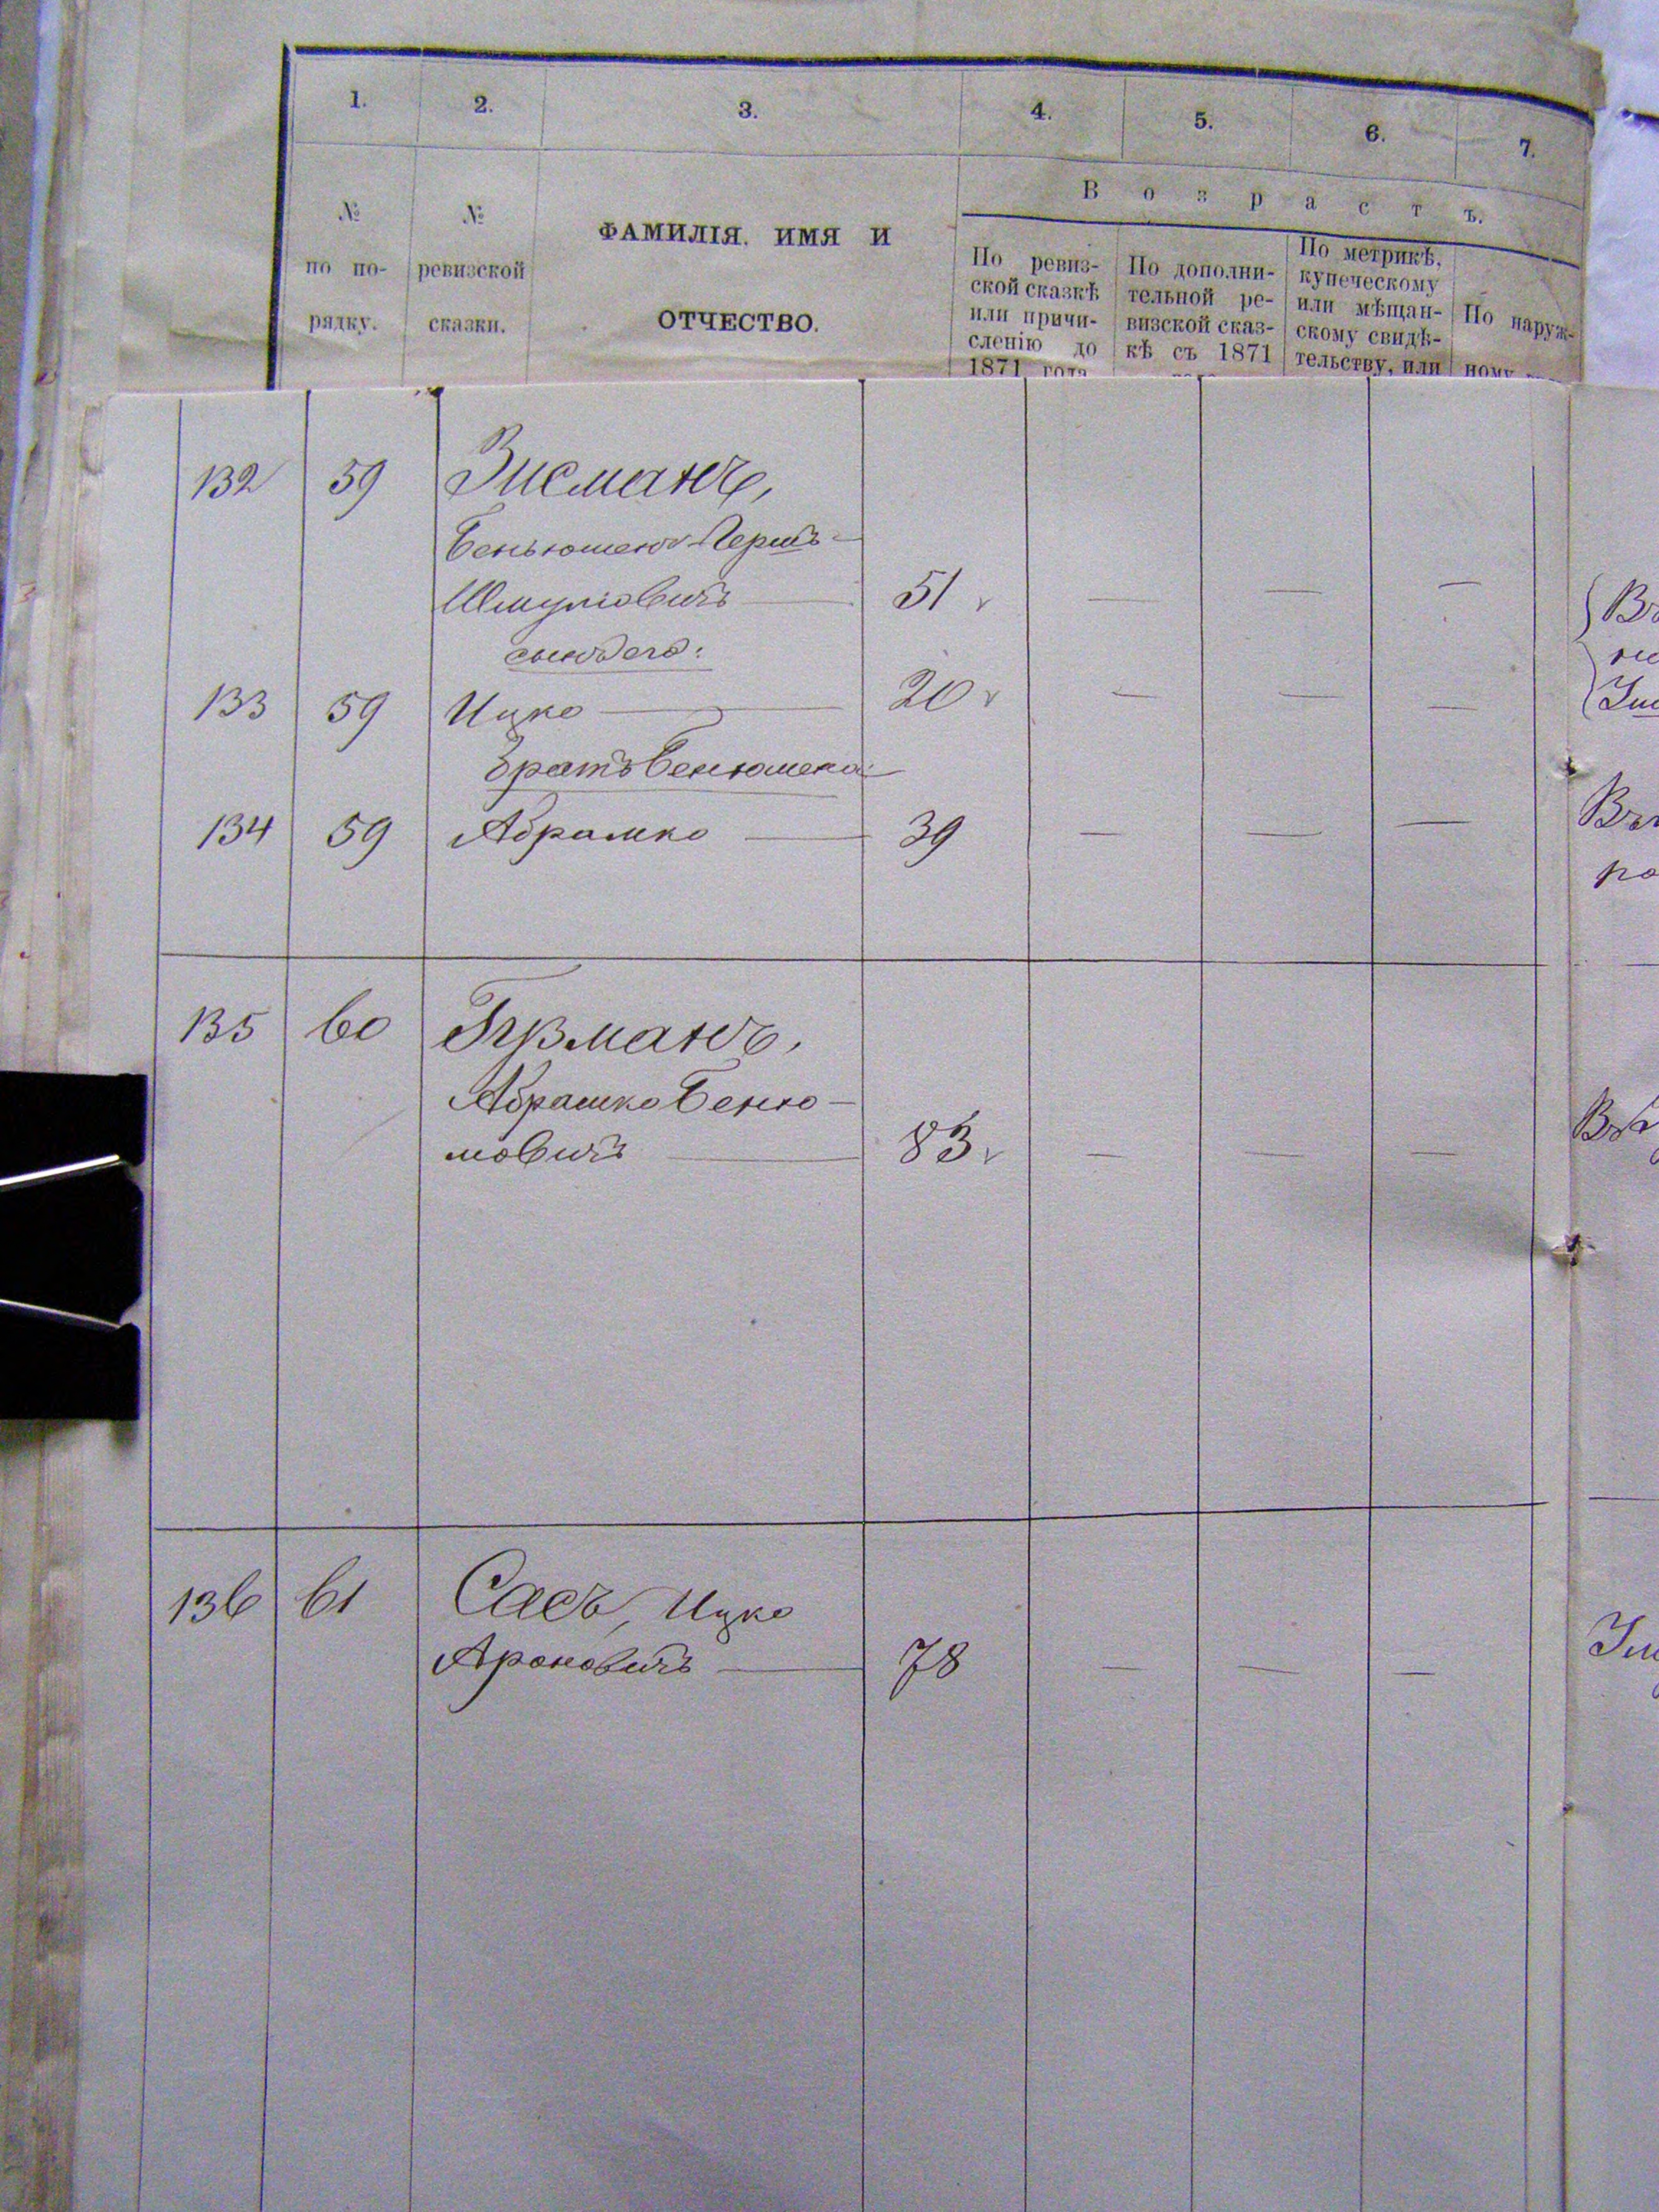 1. 2. 3. 4. 5. 6. 7.
№ по по- рядку.
№ ревизской сказки.
ФАМИЛІЯ, ИМЯ И
ОТЧЕСТВО.
Возрастъ.
По ревиз-
ской сказкѣ
или причи-
сленію до
1871 года
По дополни-
тельной ре-
визской сказ-
кѣ съ 1871
По метрикѣ,
купеческому
или мѣщан-
скому свидѣ-
тельству, или
По наруж-
ному
132 59 Зисманъ,
Беньюменъ-Гершъ
Шмулювичъ — 51 — — —
сынъ его:
133 59 Ицко — 20 — — —
братъ Бенюмена
134 59 Абрамко — 39 — — —
135 60 Гузманъ,
Абрашко Беню-
мовичъ — 83 — — —
136 61 Сасъ, Ицко
Ароновичъ — 78 — — —